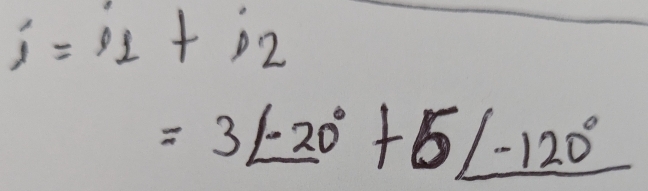 i = i1 + i2
= 3∠-20° + 5∠-120°